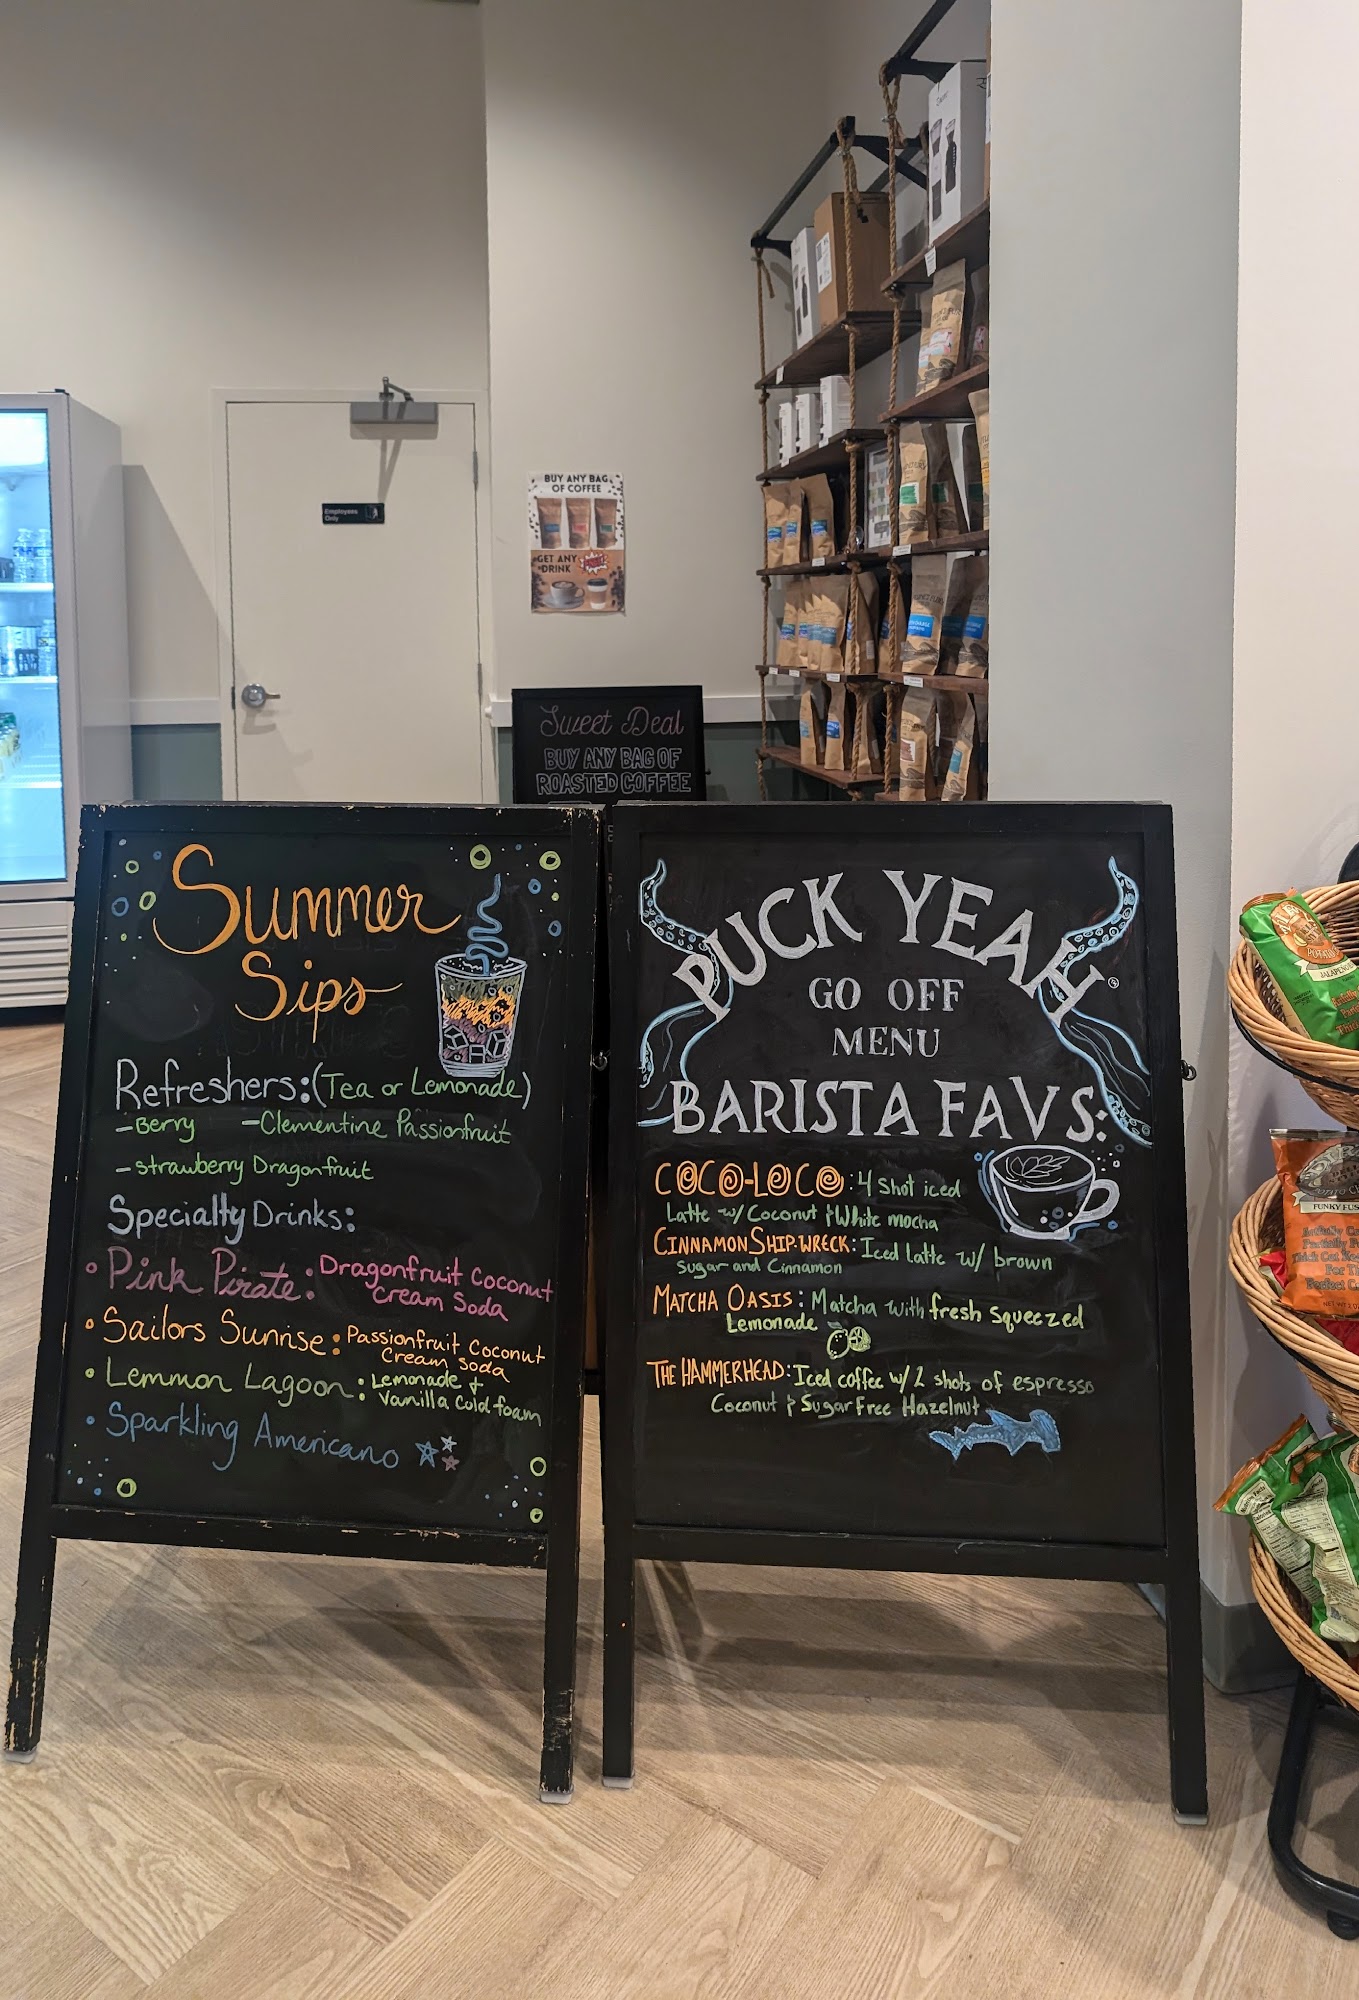 Employees
Only
BUY ANY BAG
OF COFFEE
GET ANY
DRINK
Sweet Deal
BUY ANY BAG OF
ROASTED COFFEE
Summer
Sips
Refreshers: (Tea or Lemonade)
- Berry - Clementine Passionfruit
- strawberry Dragonfruit
Specialty Drinks:
• Pink Pirate: Dragonfruit Coconut
Cream Soda
• Sailors Sunrise: Passionfruit Coconut
Cream Soda
• Lemmon Lagoon: Lemonade +
Vanilla Cold foam
• Sparkling Americano
PUCK YEAH
GO OFF
MENU
BARISTA FAVS:
COCO-LOCO: 4 shot iced
Latte w/ Coconut & White mocha
CINNAMON SHIP-WRECK: Iced latte w/ brown
sugar and Cinnamon
MATCHA OASIS: Matcha with fresh squeezed
Lemonade
THE HAMMERHEAD: Iced coffee w/ 2 shots of espresso
Coconut & Sugar Free Hazelnut
JALAPEÑO
FUNKY FUSION